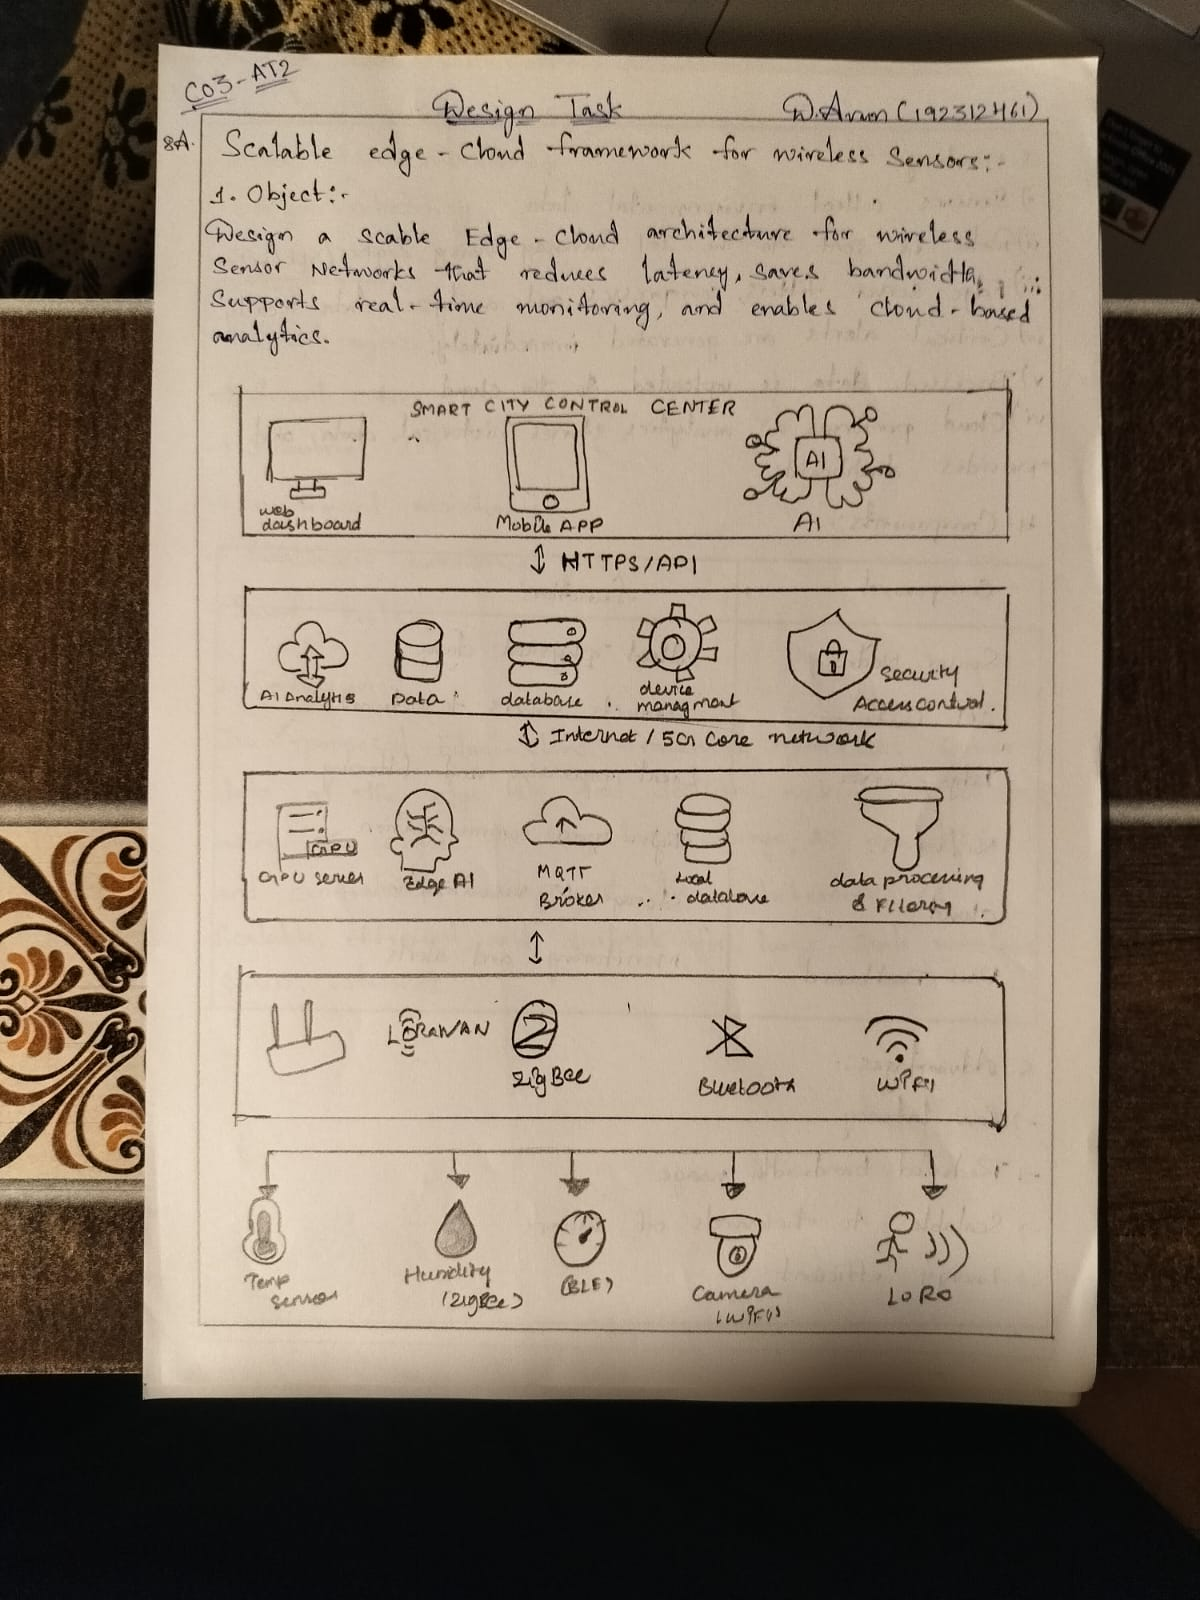 CO3-AT2
Design Task
D.Arun (192312461)
8A.
Scalable edge-Cloud framework for wireless Sensors:-
1. Object:-
Design a scable Edge-Cloud architecture for wireless
Sensor Networks that reduces latency, saves bandwidth,
Supports real-time monitoring, and enables cloud-based
analytics.
SMART CITY CONTROL CENTER
AI
web
dashboard
Mobile APP
AI
HTTPS/API
AI Analytis
Data
database
device
managment
Security
Access control.
Internet / 5G Core network
GPU
GPU server
Edge AI
MQTT
Broker
Local
database
data processing
&
LORAWAN
Z
ZigBee
Bluetooth
WiFi
Temp
Sensor
Humidity
(ZigBee)
(BLE)
Camera
(WiFi)
LORO